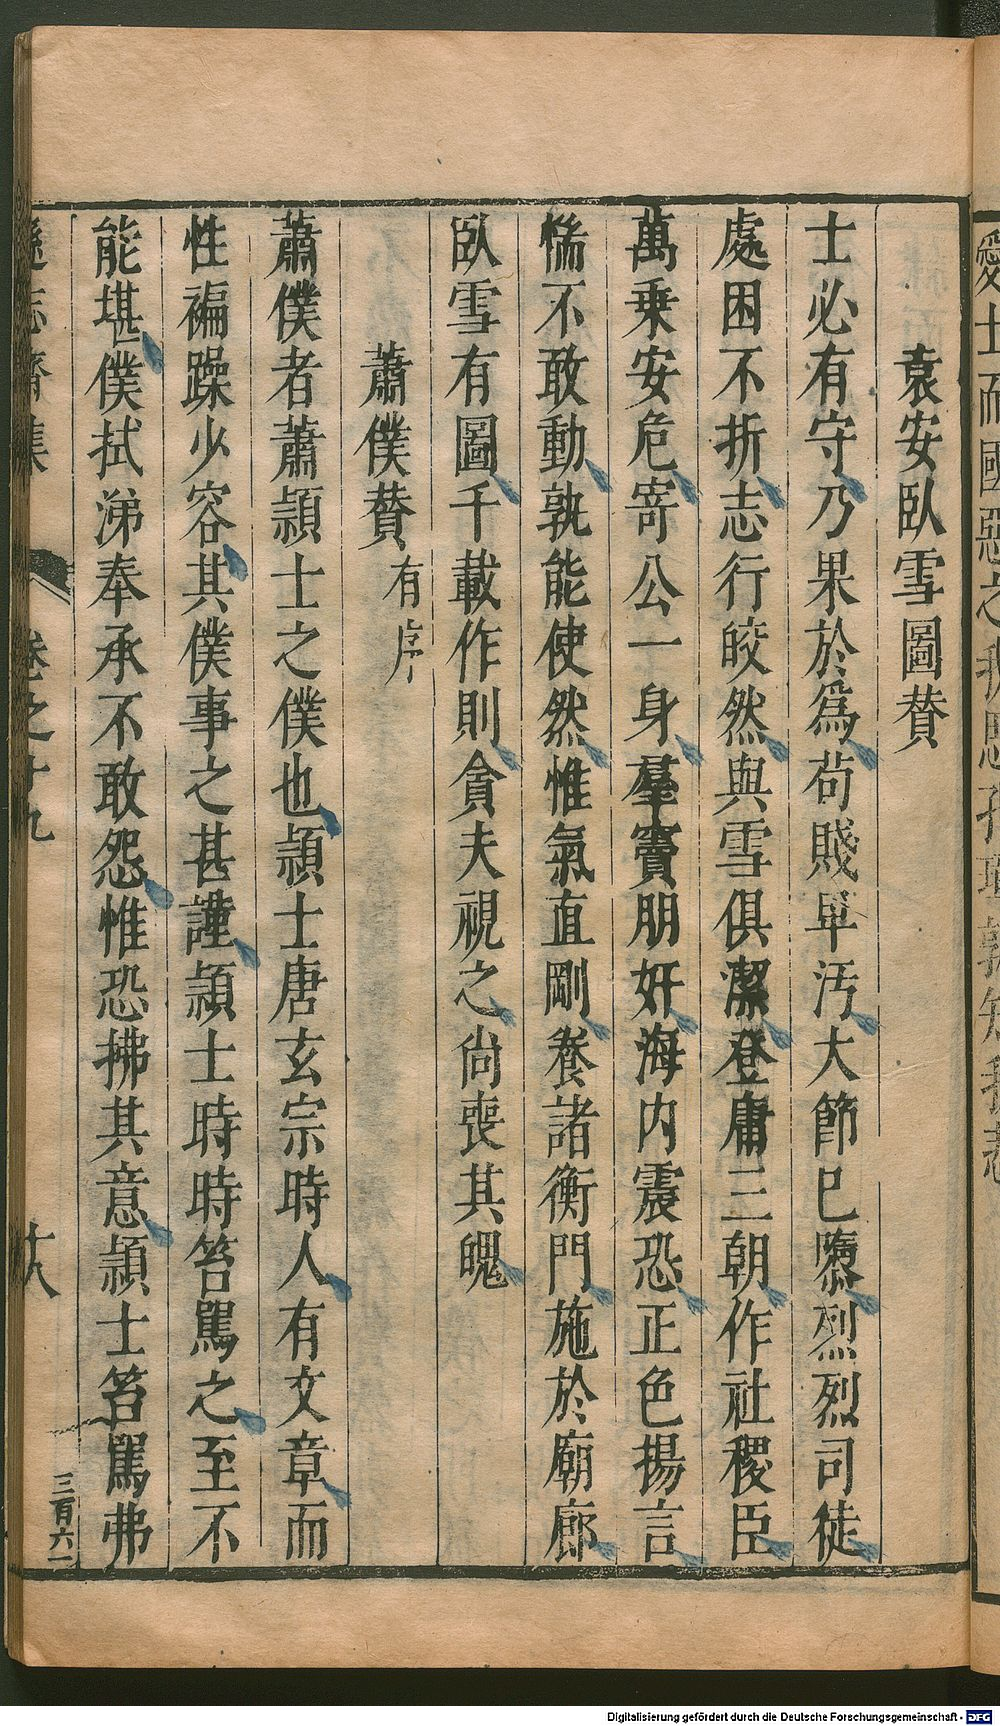 袁安臥雪圖贊
士必有守乃果於爲苟賤卑汚大節已隳烈烈司徒
處困不折志行皎然與雪俱潔登庸三朝作社稷臣
萬乗安危寄公一身羣竇朋奸海内震恐正色揚言
惴不敢動孰能使然惟氣直剛養諸衡門施於廟廊
臥雪有圖千載作則貪夫視之尚喪其魄
蕭僕贊有序
蕭僕者蕭頴士之僕也頴士唐玄宗時人有文章而
性褊躁少容其僕事之甚謹頴士時時笞罵之至不
能堪僕拭涕奉承不敢怨惟恐拂其意頴士笞罵弗
遜志齋集 卷之十九 十八 三百六一
愛士而國惡之
Digitalisierung gefördert durch die Deutsche Forschungsgemeinschaft - DFG